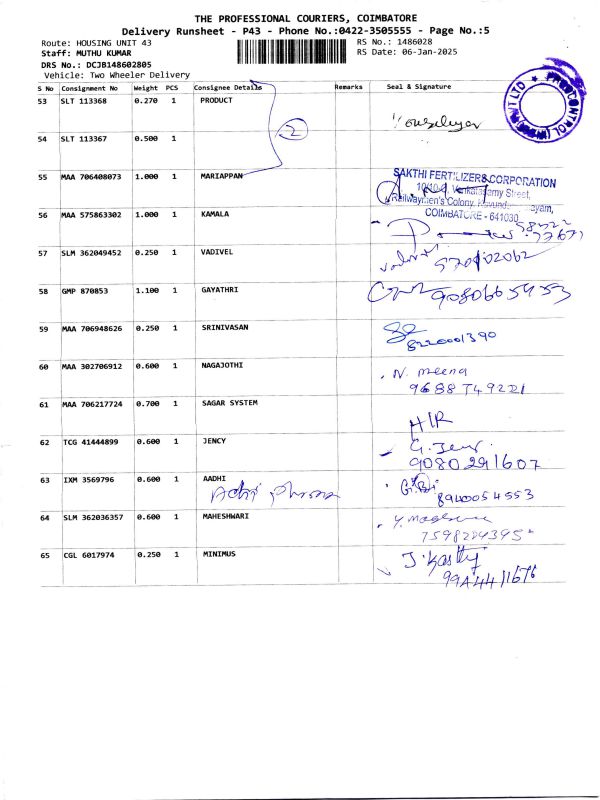 THE PROFESSIONAL COURIERS, COIMBATORE
Delivery Runsheet - P43 - Phone No.:0422-3505555 - Page No.:5
Route: HOUSING UNIT 43
RS No.: 1486028
Staff: MUTHU KUMAR
RS Date: 06-Jan-2025
DRS No.: DCJB148602805
Vehicle: Two Wheeler Delivery
S No Consignment No Weight PCS Consignee Details Remarks Seal & Signature
53 SLT 113368 0.270 1 PRODUCT
2
54 SLT 113367 0.500 1
55 MAA 706408073 1.000 1 MARIAPPAN
SAKTHI FERTILIZERS CORPORATION
Street,
Railwaymen's Colony,
COIMBATORE - 641030
56 MAA 575863302 1.000 1 KAMALA
57 SLM 362049452 0.250 1 VADIVEL
58 GMP 870853 1.100 1 GAYATHRI
59 MAA 706948626 0.250 1 SRINIVASAN
8220001390
60 MAA 302706912 0.600 1 NAGAJOTHI
N. meena
61 MAA 706217724 0.700 1 SAGAR SYSTEM
H/R
62 TCG 41444899 0.600 1 JENCY
9080291607
63 IXM 3569796 0.600 1 AADHI
8940054553
64 SLM 362036357 0.600 1 MAHESHWARI
65 CGL 6017974 0.250 1 MINIMUS